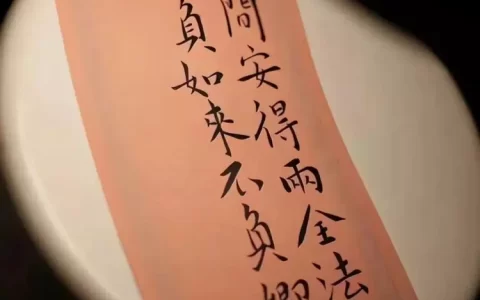 間安得兩全法
負如來不負卿